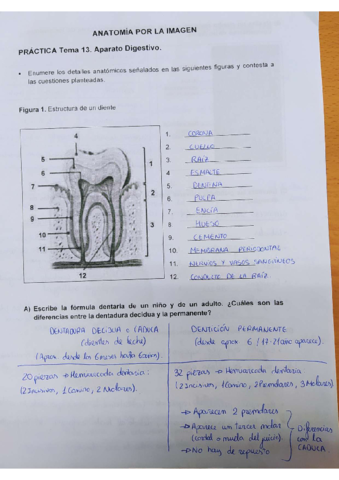 ANATOMÍA POR LA IMAGEN
PRÁCTICA Tema 13. Aparato Digestivo.
• Enumere los detalles anatómicos señalados en las siguientes figuras y contesta a
las cuestiones planteadas.
Figura 1. Estructura de un diente
1. CORONA
2. CUELLO
3. RAÍZ
4. ESMALTE
5. DENTINA
6. PULPA
7. ENCÍA
8. HUESO
9. CEMENTO
10. MEMBRANA PERIODONTAL
11. NERVIOS Y VASOS SANGUÍNEOS
12. CONDUCTO DE LA RAÍZ
4
5
6
7
8
9
10
11
12
1
2
3
A) Escribe la fórmula dentaria de un niño y de un adulto. ¿Cuáles son las
diferencias entre la dentadura decidua y la permanente?
DENTADURA DECIDUA o CADUCA
(dientes de leche)
(Aprox desde los 6 meses hasta 6 años)
DENTICIÓN PERMANENTE:
(desde aprox 6 / 17-21 años aparecen)
20 piezas → Hemiarcada dentaria:
(2 Incisivos, 1 Canino, 2 Molares).
32 piezas → Hemiarcada dentaria
(2 incisivos, 1 Canino, 2 Premolares, 3 Molares)
→ Aparecen 2 premolares
→ Aparece un tercer molar
(cordal o muela del juicio)
→ No hay de repuesto
Diferencias
con la
CADUCA